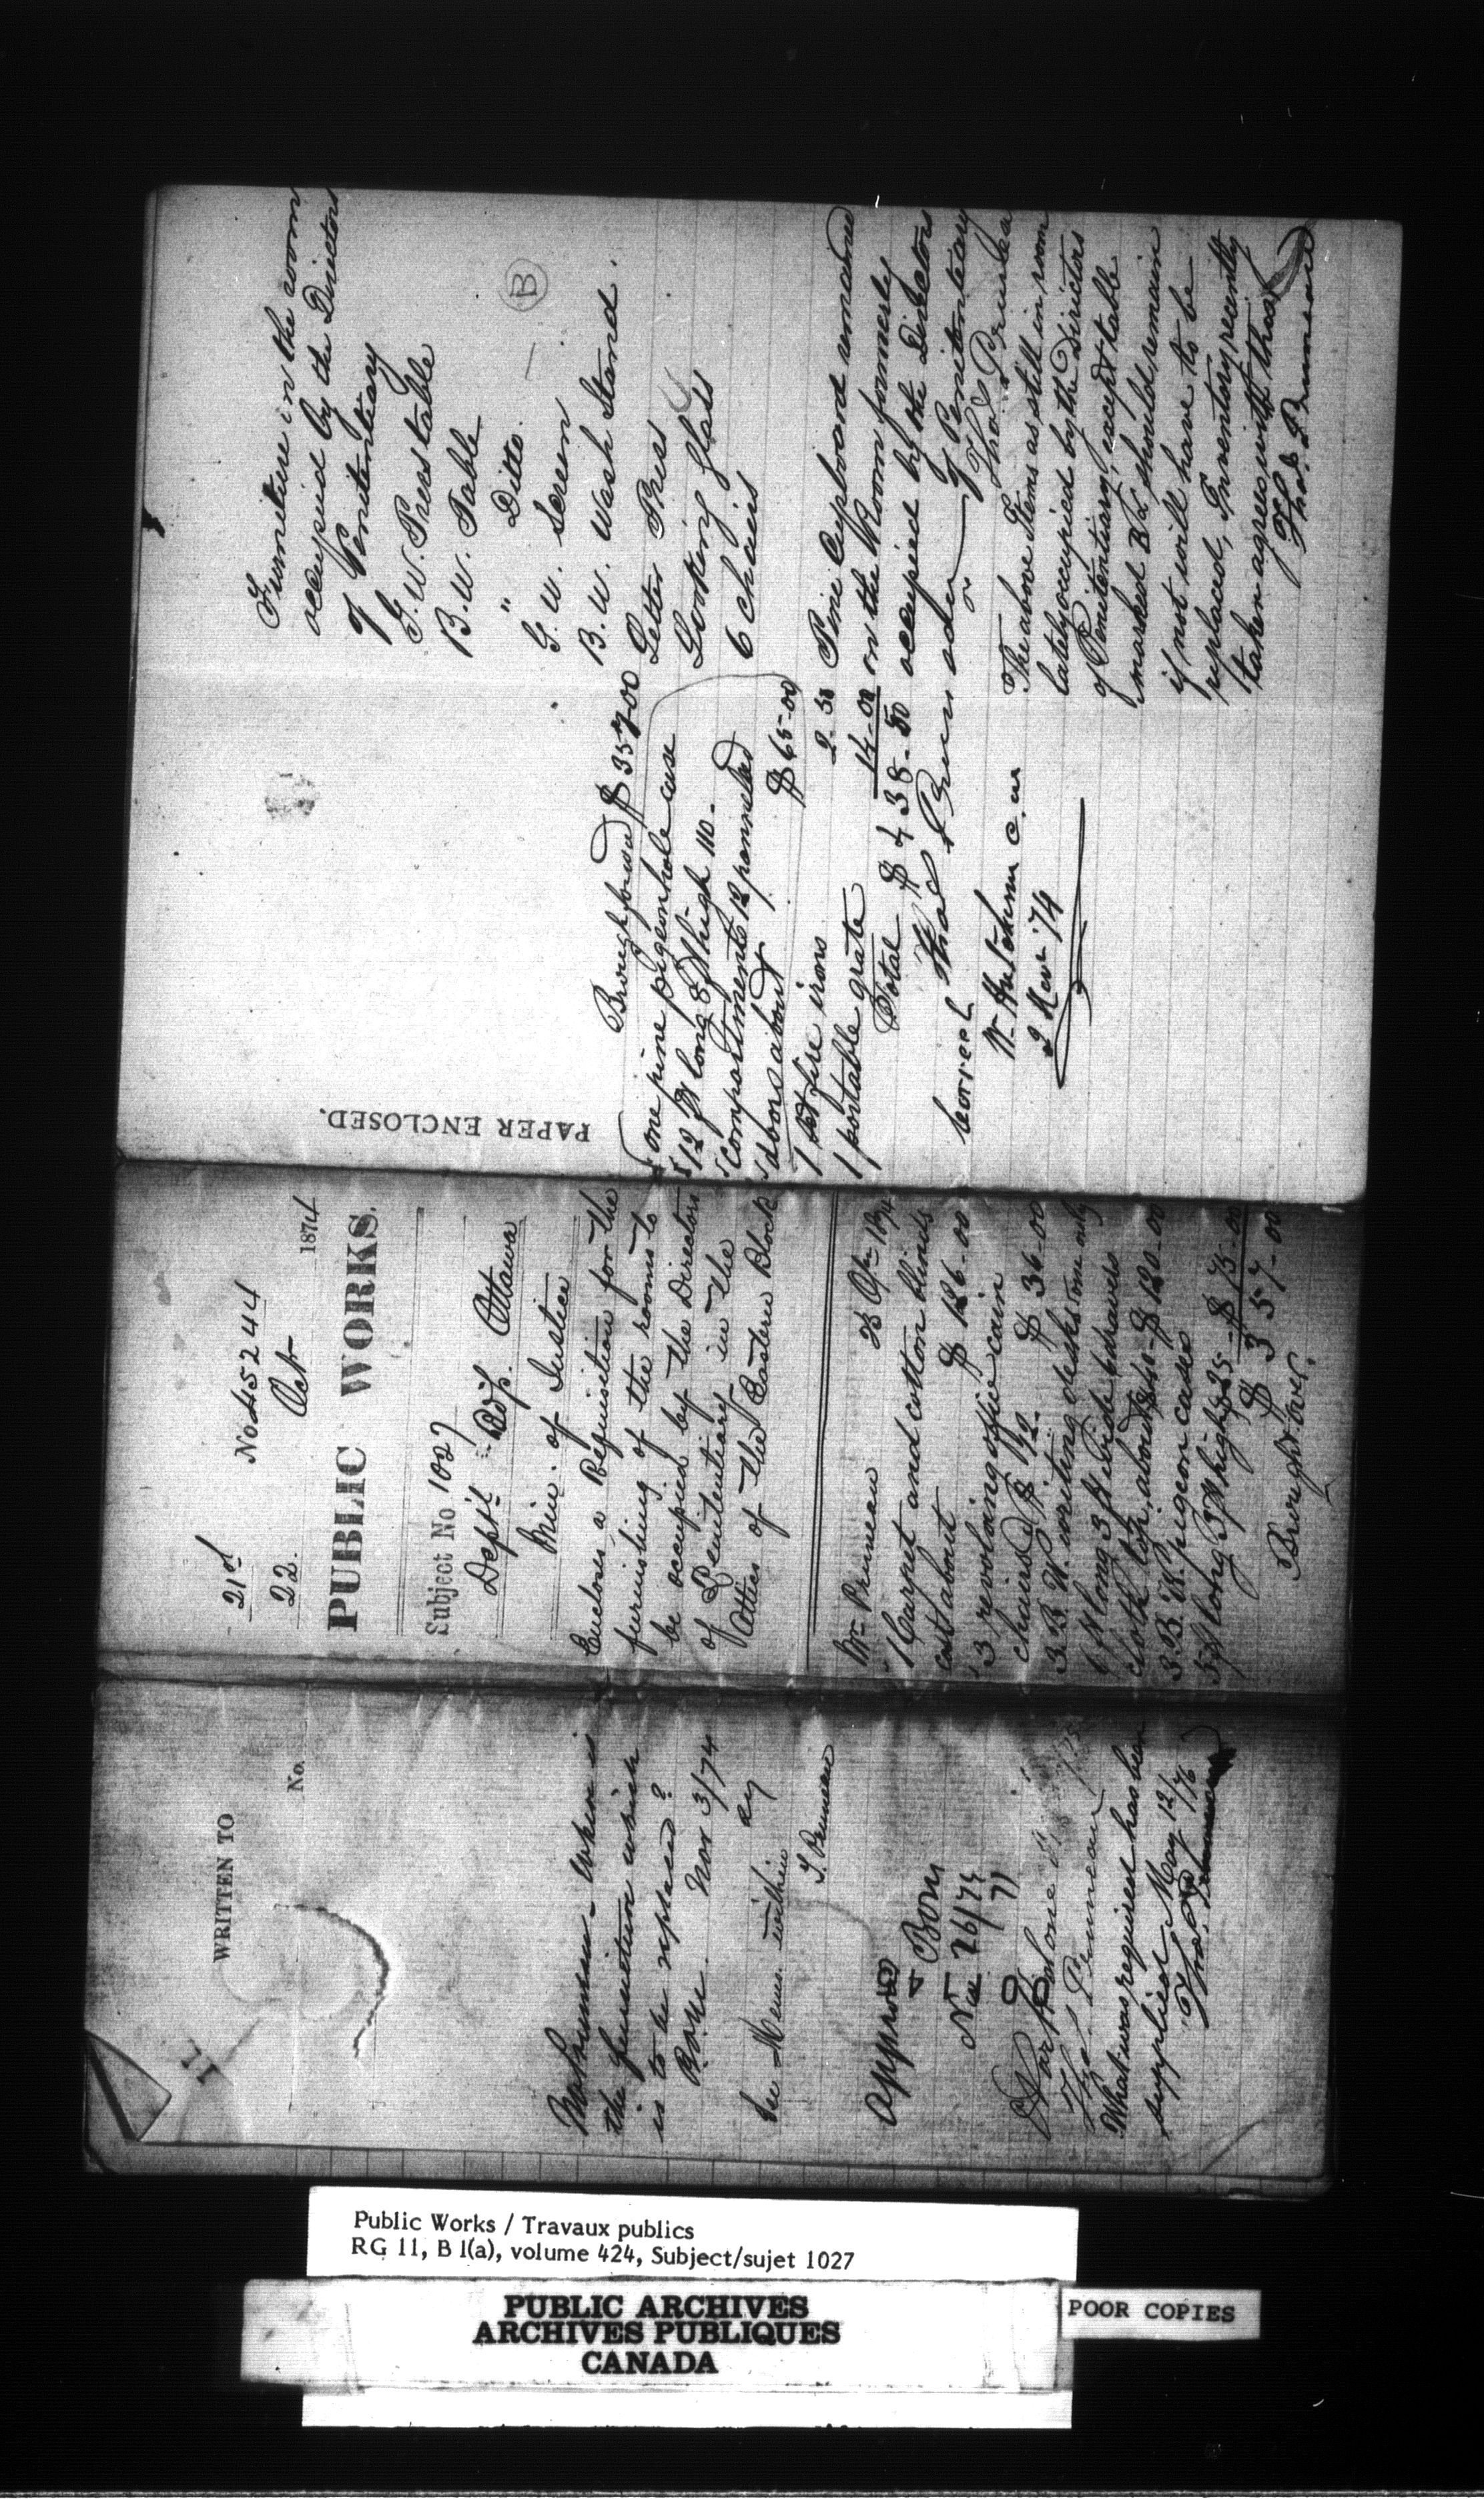 WRITTEN TO
No.
Mr Pruneau - Where is
the furniture which
is to be replaced?
Nov 3/74
See Memo. within
T. Pruneau
Approved
Nov 26/74
What was required has been
supplied May 12/76
21st
No 45244
22. Oct 1874
PUBLIC WORKS.
Subject No 1027
Dep'y Min. of Justice Ottawa
Encloses a Requisition for the
furnishing of the rooms to
be occupied by the Directors
of Penitentiary in the
Attics of the Eastern Block
Mr Pruneau
1 Carpet and cotton blinds
cost about $ 126-00
3 revolving office cain
chairs $ 12- $ 36-00
3 B. W. writing desks one only
6 ft long 3 ft wide drawers
cloth top, about $40- $ 120-00
3 B. W. pigeon cases
5 ft long 3 ft high $25- $ 75-00
$ 357-00
Brought over.
PAPER ENCLOSED.
Brought forward $ 357 00
one pine pigeonhole case
12 ft long 8 ft high 110-
compartments 12 pannelled
doors about $ 65-00
1 set fire irons 2-50
1 portable grate 14-00
Total $ 438-50
Thos Pruneau
Correct
2 Nov '74
Furniture in the room
occupied by the Directors
of Penitentiary
G. W. Press table
B. W. Table
" Ditto.
B
G. W. Screen
B. W. Wash Stand.
Letter Press
Looking glass
6 chairs
Pine Cupboard remained
in the Room formerly
occupied by the Directors
of Penitentiary
Thos Pruneau
The above Items as still in room
lately occupied by the Directors
of Penitentiary, except table
marked B & should remain
if not will have to be
replaced, Inventory recently
taken agrees with that
Thos. Pruneau
Public Works / Travaux publics
RG 11, B 1(a), volume 424, Subject/sujet 1027
PUBLIC ARCHIVES
ARCHIVES PUBLIQUES
CANADA
POOR COPIES